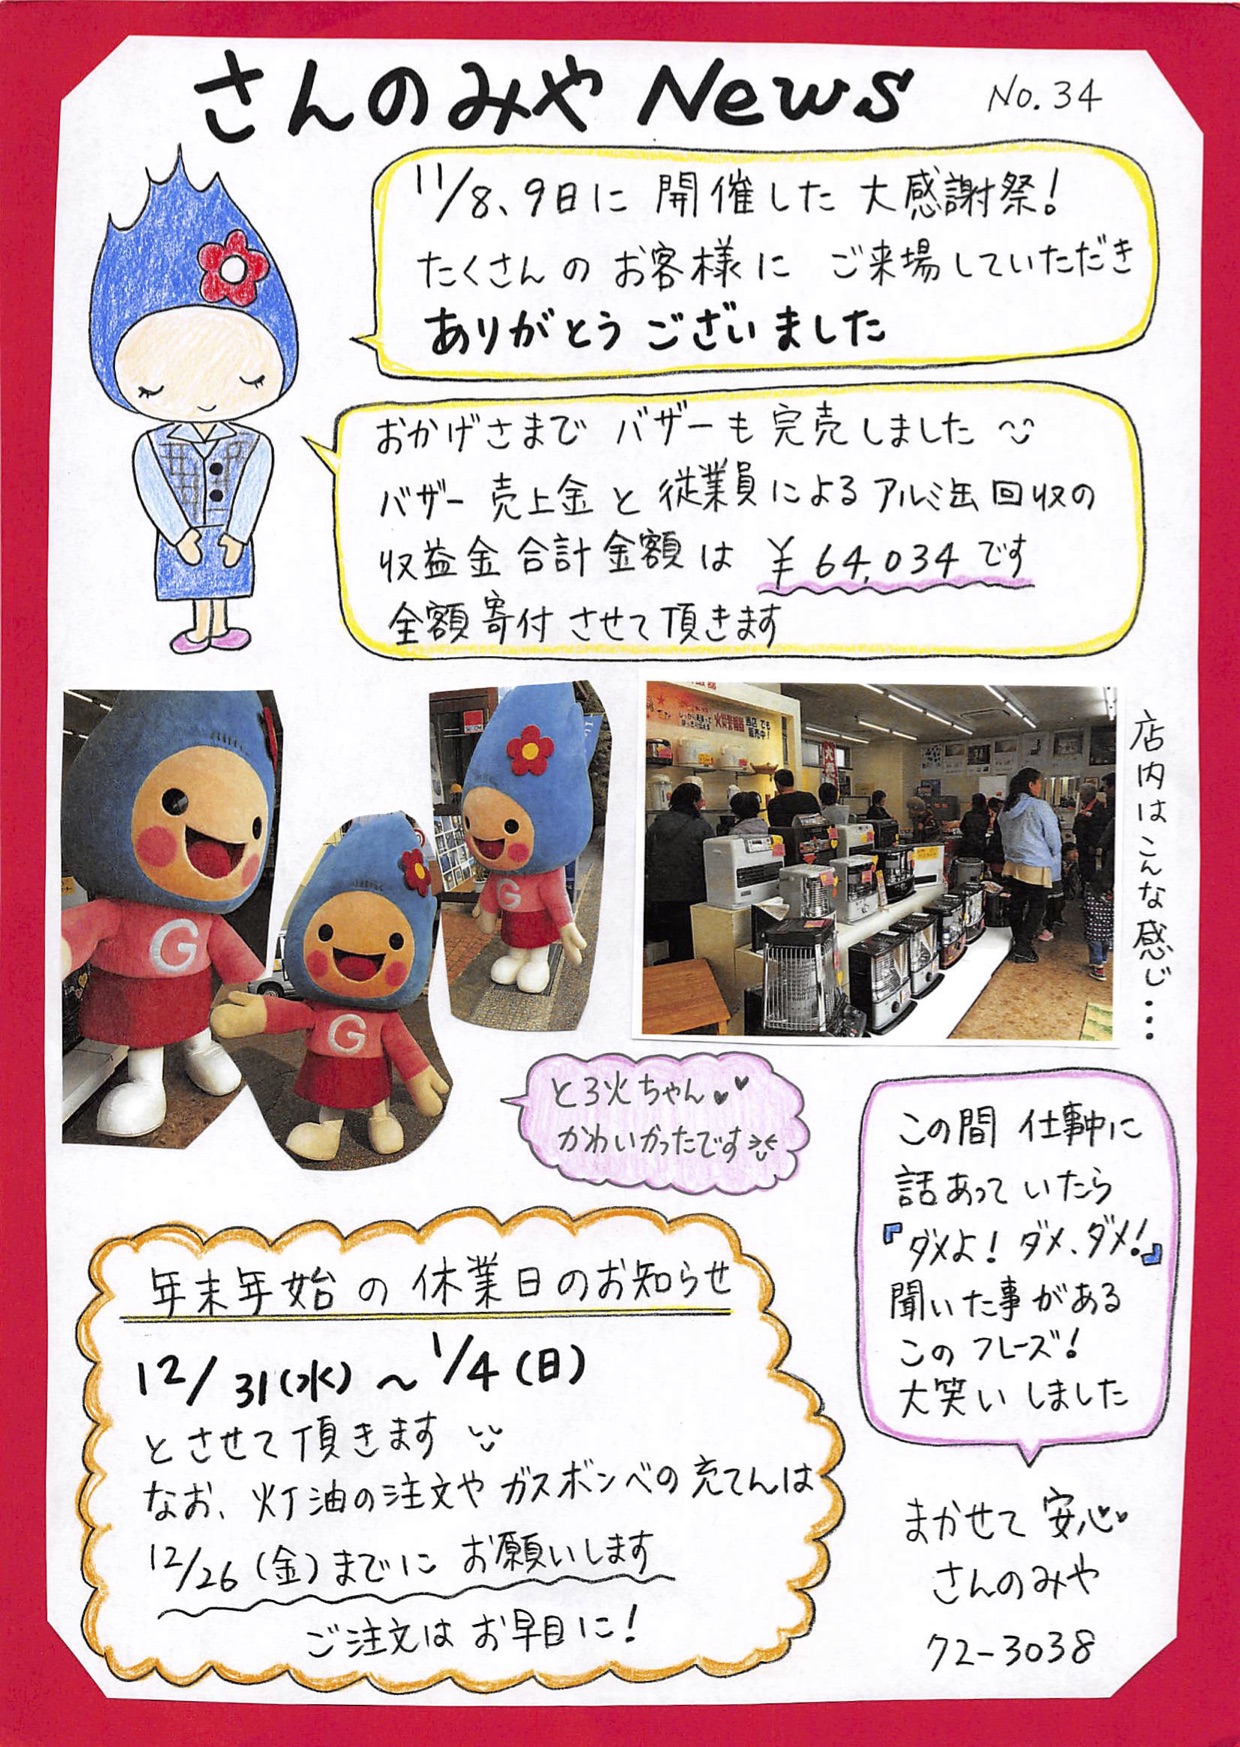 さんのみや News No.34
11/8、9日に 開催した 大感謝祭!
たくさんの お客様に ご来場していただき
ありがとう ございました
おかげさまで バザーも 完売しました
バザー 売上金と 従業員による アルミ缶 回収の
収益金 合計 金額は ¥64,034 です
全額 寄付 させて 頂きます
火災警報器
店内は こんな 感じ・・・
G
G
G
とろ火ちゃん♥♥
かわいかったです
この間 仕事中に
話あって いたら
『ダメよ! ダメ、ダメ!』
聞いた事がある
この フレーズ!
大笑い しました
年末年始 の 休業日のお知らせ
12/31(水) ~ 1/4(日)
とさせて 頂きます
なお、灯油の注文や ガスボンベの 充てんは
12/26(金)までに お願いします
ご注文は お早目に!
まかせて 安心
さんのみや
72-3038